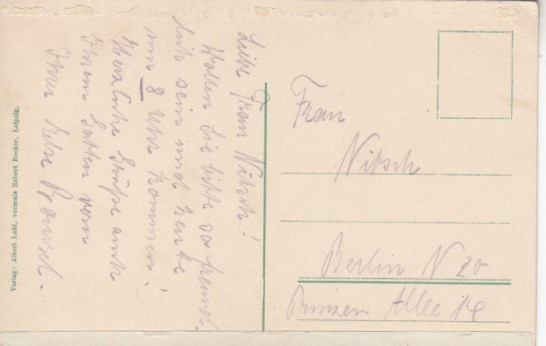 Liebe Frau Nitsch!
Wollen Sie bitte so freund-
lich sein und heute
um 8 Uhr kommen!
Herzliche Grüße auch
Ihrem Gatten von
Ihrer
Frau
Nitsch
Berlin N 20
Prinzen Allee
Verlag: Albert Lohl, vormals Robert Becker, Leipzig.